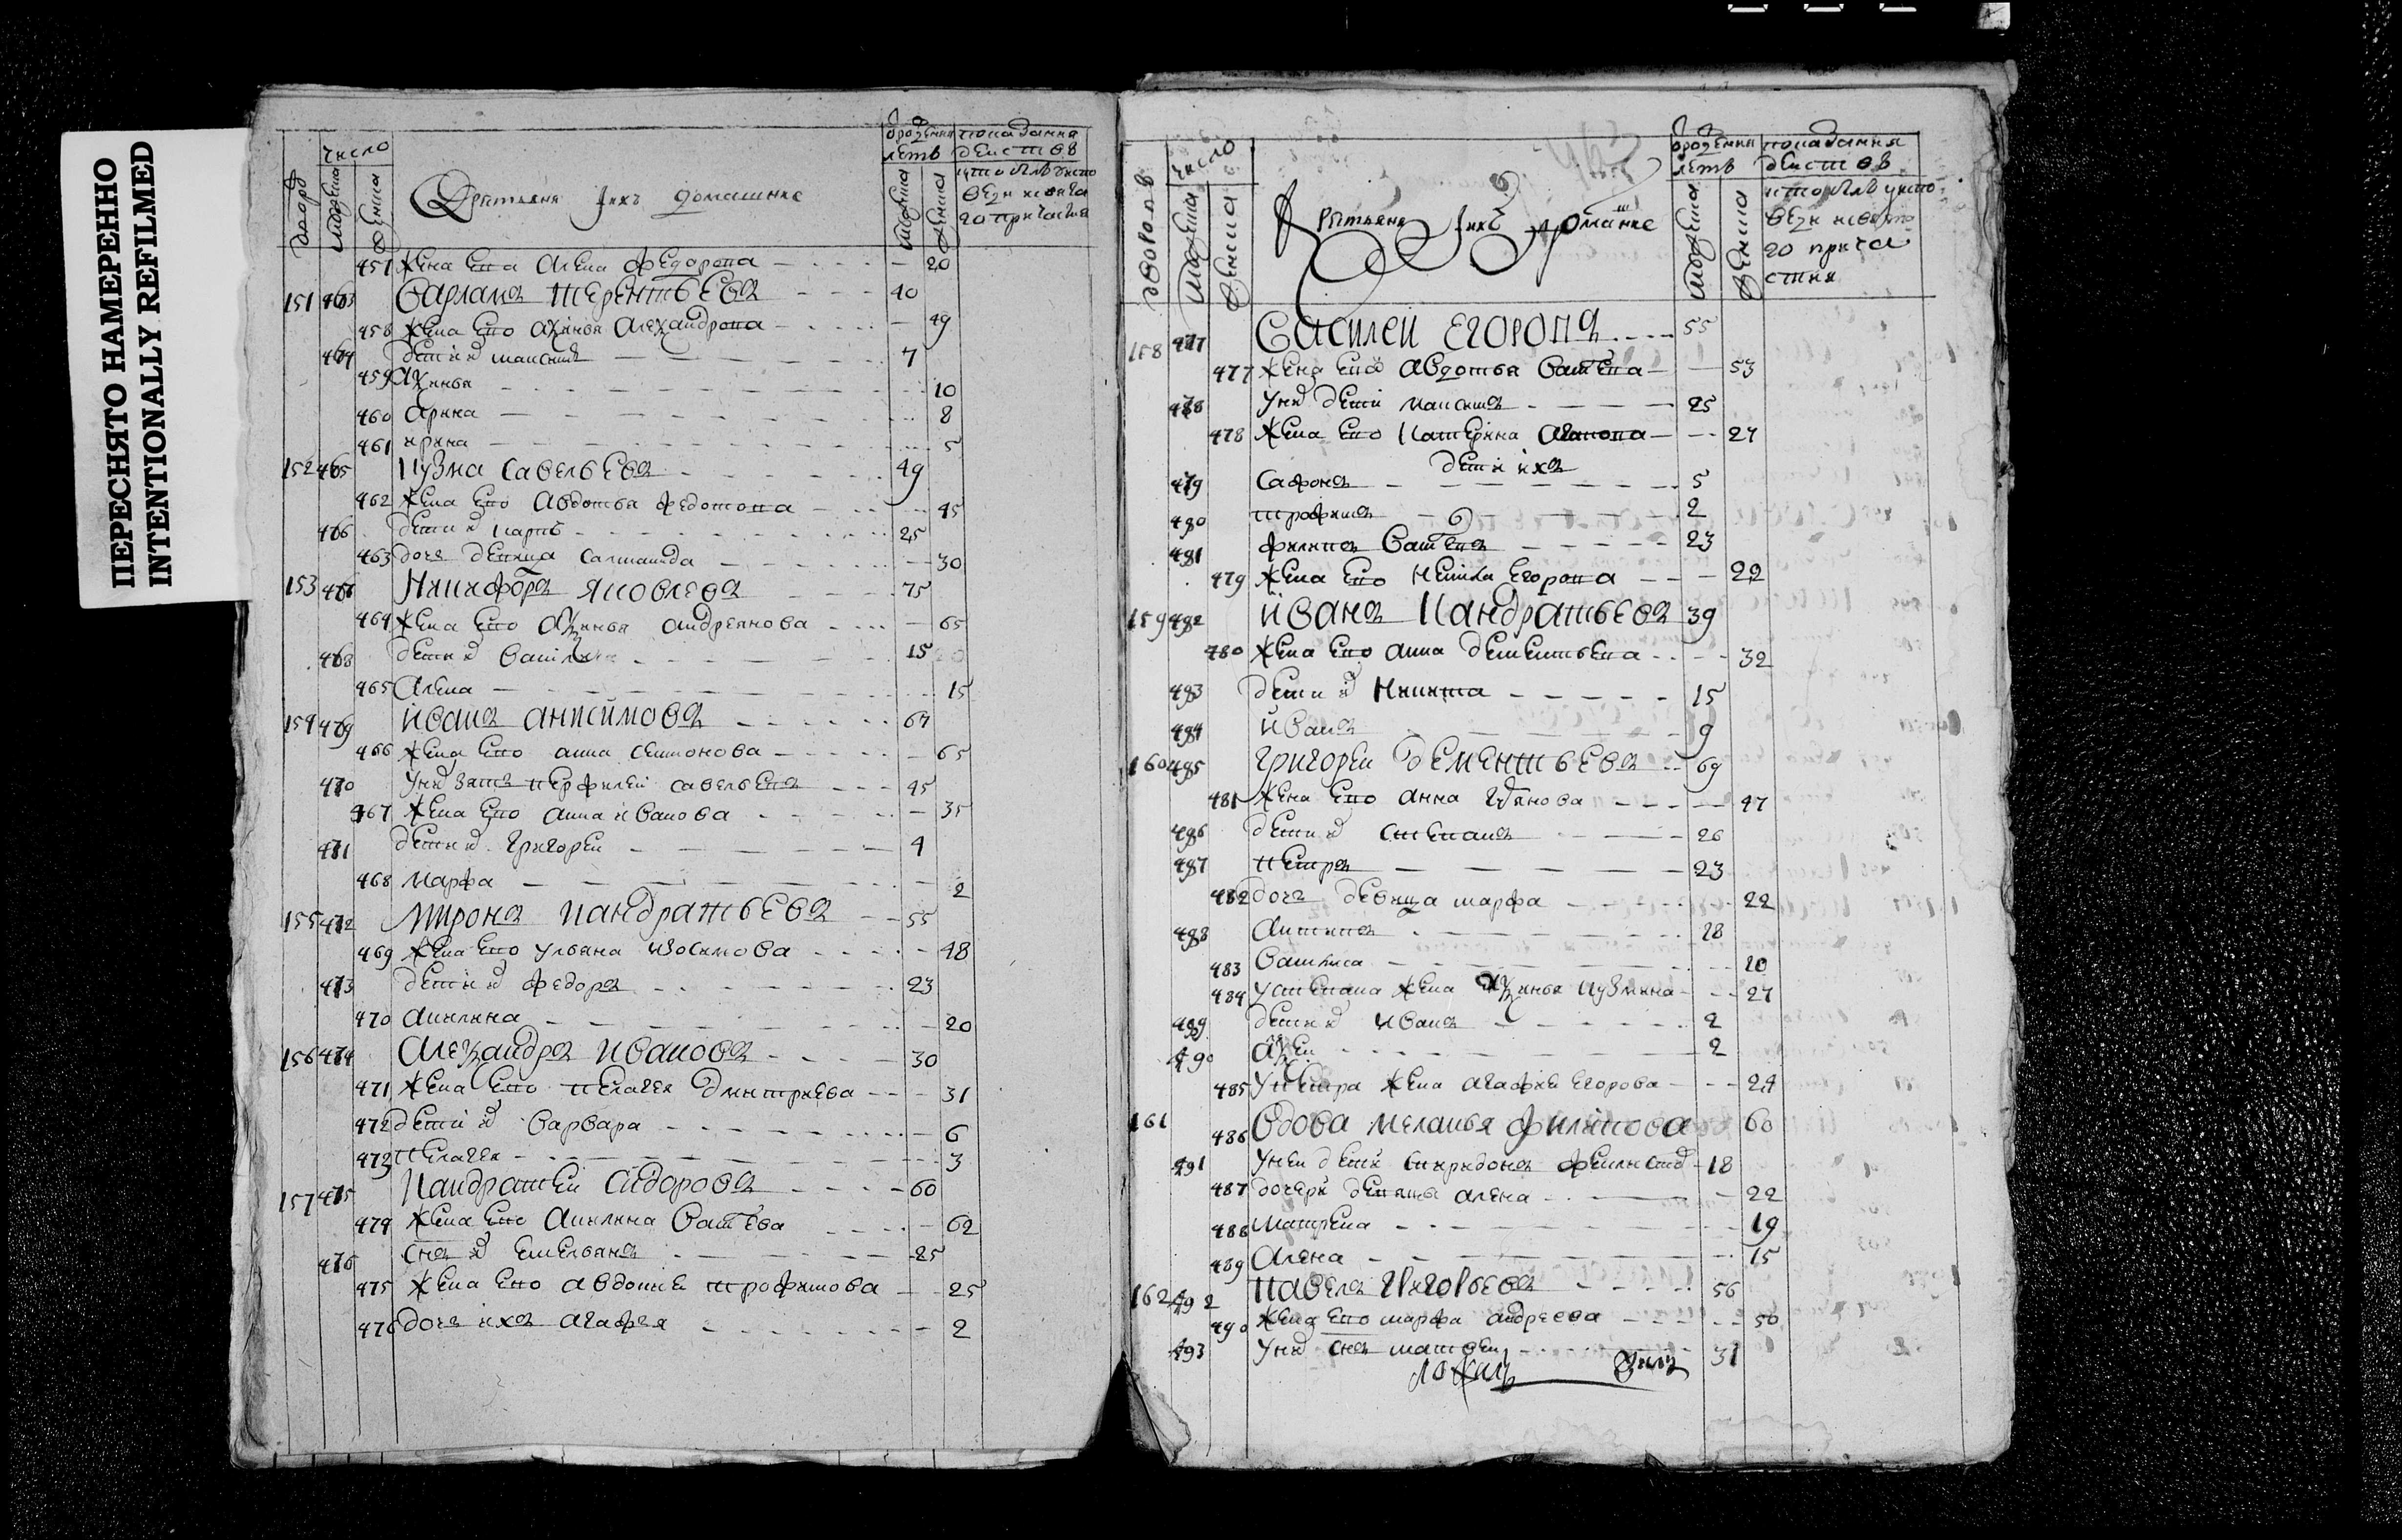 ПЕРЕСНЯТО НАМЕРЕННО
INTENTIONALLY REFILMED
число
дворов
мужеска
женска
Крестьяня и ихъ домашние
от рождения летъ
мужеска
женска
показания действ
кто былъ у исповеди и святаго причастия
457 жена ево Алена Федарова 20
151 463 Варламъ Терентьевъ 40
458 жена ево Аѯинья Алеѯандрова 49
464 дети их Маѯимъ 7
459 Аѯинья 10
460 Арина 8
461 ирина 5
152 465 Кузма Савельевъ 49
462 жена ево Авдотья Федотова 45
466 дети их карпъ 25
463 дочь девица Салманида 30
153 467 Никифоръ Яковлевъ 75
464 жена ево Аѯинья андреянова 65
468 дети их Васил 15
465 Алена 15
154 469 Иванъ Анисимовъ 67
466 жена ево анна семионова 65
470 у них зять перфилей савельевъ 45
467 жена ево анна иванова 35
471 дети их Григорей 4
468 Марфа 2
155 472 Миронъ кандратьевъ 55
469 жена ево ульяна изосимова 48
473 дети их федоръ 23
470 Акилина 20
156 474 Алеѯандръ ивановъ 30
471 жена ево пелагея дмитриева 31
472 дети их варвара 6
473 пелагея 3
157 475 Кандратей Сидоровъ 60
474 жена ево Акилина Васильева 62
476 снъ их емельянъ 25
475 жена ево авдотья трофимова 25
476 дочь ихъ агафья 2
дворовъ
число
мужеска
женска
Крестьяня и ихъ домашние
от рождения летъ
мужеска
женска
показания действ
кто былъ у исповеди и святого причастия
158 477 Василей Егоровъ 55
477 жена ево Авдотья Васильева 53
478 у них дети маѯимъ 25
478 жена ево катерина 27
дети ихъ
479 Сафонъ 5
480 трофимъ 2
481 филипъ Васильевъ 23
479 жена ево Егорова 22
159 482 Иванъ Кандратьевъ 39
480 жена ево анна дементьева 32
483 дети их Никита 15
484 Иванъ 9
160 485 Григорей Дементьевъ 69
481 жена ево анна 47
486 дети их степанъ 26
487 петръ 23
482 дочь девица марфа 22
488 Антипъ 18
483 Василиса 10
484 у степана жена Аѯинья кузмина 27
489 дети их иванъ 2
490 2
485 у петра жена агафия Егорова 24
161 486 Вдова Меланья Филипова 60
491 у неи дети спиридонъ 18
487 дочери девицы алена 22
488 матрена 19
489 Алена 15
162 492 Павелъ Григорьевъ 56
490 жена ево марфа андреева 50
493 у них снъ матвеи 31